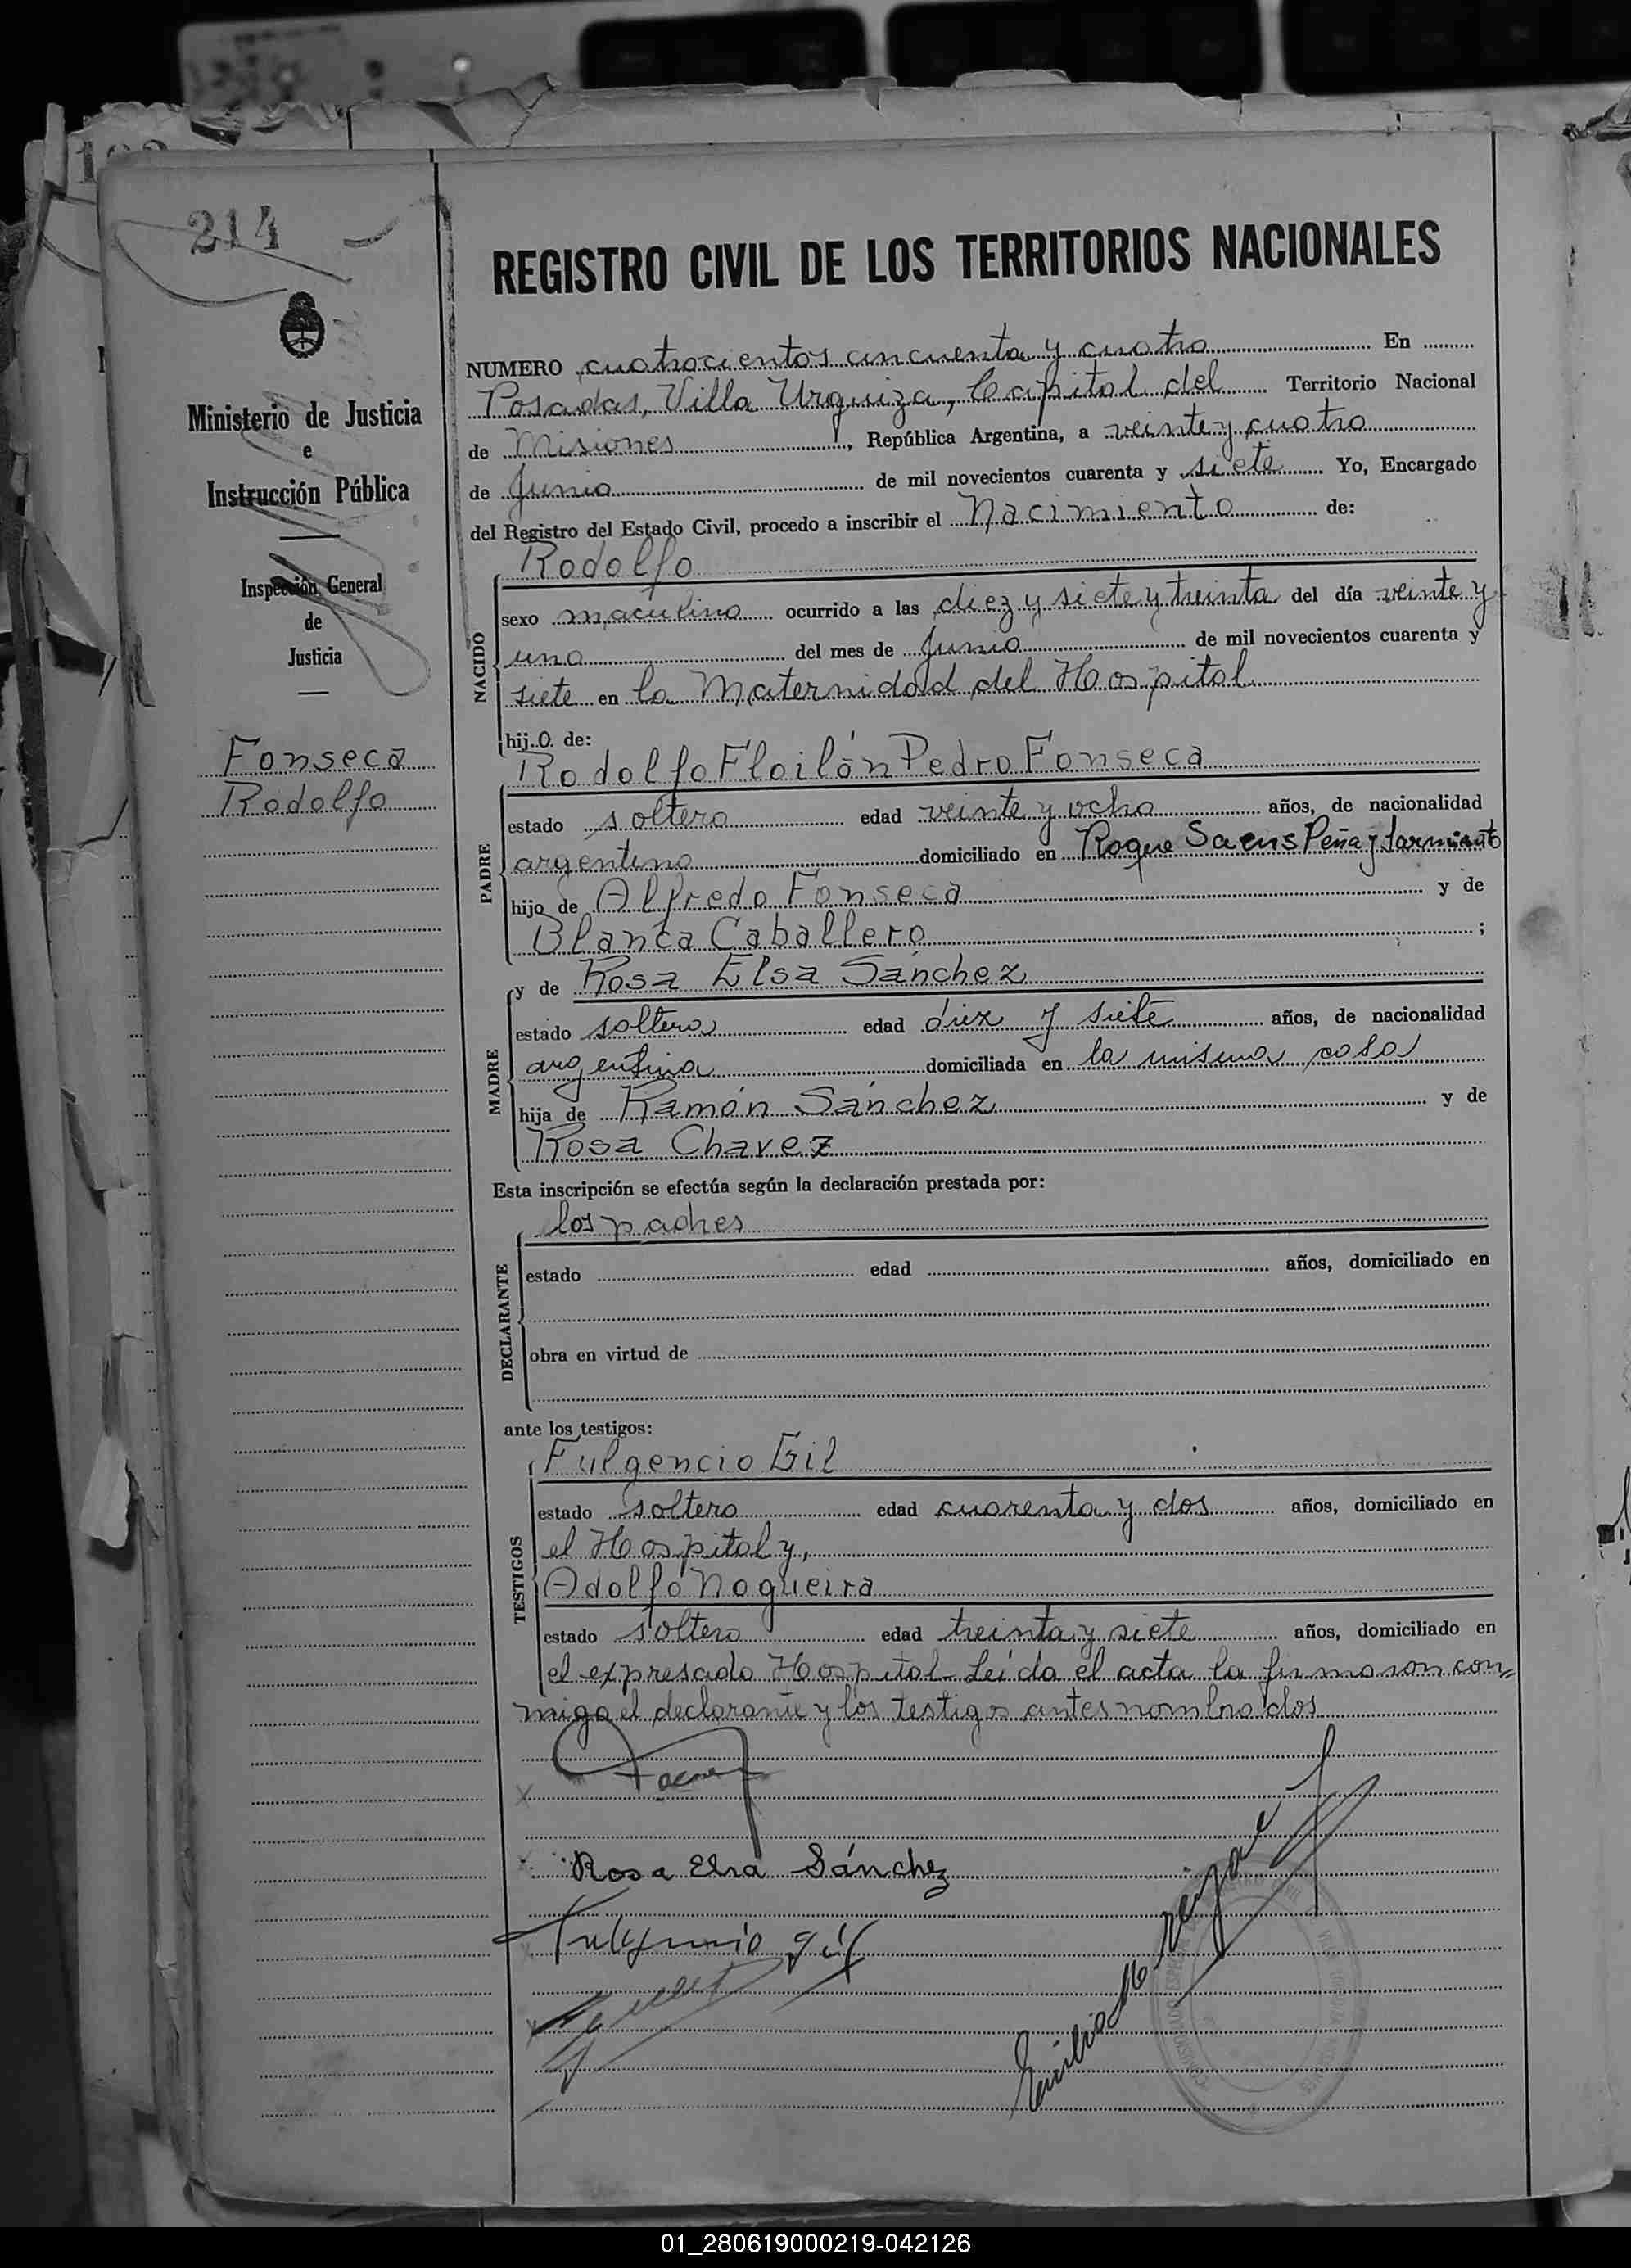 214
REGISTRO CIVIL DE LOS TERRITORIOS NACIONALES
Ministerio de Justicia
e
Instrucción Pública
Inspección General
de
Justicia
Fonseca
Rodolfo
NUMERO cuatrocientos cincuenta y cuatro En
Posadas, Villa Urquiza, Capital del Territorio Nacional
de Misiones, República Argentina, a veinte y cuatro
de Junio de mil novecientos cuarenta y siete Yo, Encargado
del Registro del Estado Civil, procedo a inscribir el Nacimiento de:
Rodolfo
NACIDO
sexo maculino ocurrido a las diez y siete y treinta del día veinte y
uno del mes de Junio de mil novecientos cuarenta y
siete en la Maternidad del Hospital
hij.o. de:
Rodolfo Floilón Pedro Fonseca
PADRE
estado soltero edad veinte y ocho años, de nacionalidad
argentino domiciliado en Roque Saens Peña y Sarmiento
hijo de Alfredo Fonseca y de
Blanca Caballero ;
MADRE
y de Rosa Elsa Sánchez
estado soltera edad diez y siete años, de nacionalidad
argentina domiciliada en la misma casa
hija de Ramón Sánchez y de
Rosa Chavez
Esta inscripción se efectúa según la declaración prestada por:
los padres
DECLARANTE
estado edad años, domiciliado en
obra en virtud de
ante los testigos:
TESTIGOS
Fulgencio Gil
estado soltero edad cuarenta y dos años, domiciliado en
el Hospital y,
Adolfo Nogueira
estado soltero edad treinta y siete años, domiciliado en
el expresado Hospital. Leída el acta la firmaron con=
migo el declarante y los testigos antes nombrados
Rosa Elsa Sánchez
Fulgencio Gil
Emilio
01_280619000219-042126